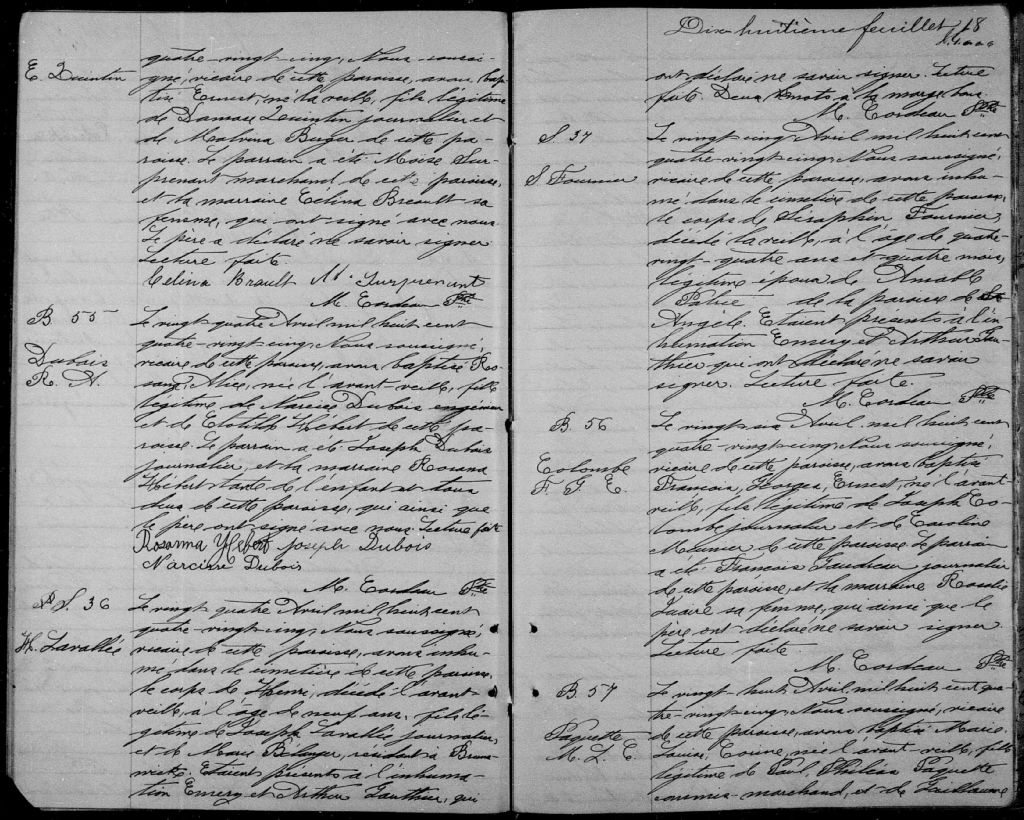 E. Quintin
quatre-vingt cinq, Nous soussi-
gné, vicaire de cette paroisse, avons bap-
tisé Ernest, né la veille, fils légitime
de Damase Quintin journalier et
de Malvina Buger de cette pa-
roisse. Le parrain a été Moise Sur-
prenant marchand de cette paroisse,
et la marraine Célina Breault sa
femme, qui ont signé avec nous.
Le père a déclaré ne savoir signer
Lecture faite
Célina Brault M. Surprenant
M. Cordeau Ptre
B 55
Dubois
R. A.
Le vingt quatre Avril mil huit cent
quatre-vingt-cinq, Nous soussigné,
vicaire de cette paroisse, avons baptisé Ro-
sanna, Alice, née l'avant-veille, fille
légitime de Narcisse Dubois
et de Clotilde Hébert de cette pa-
roisse. Le parrain a été Joseph Dubois
journalier, et la marraine Rosana
Hébert tante de l'enfant et tous
deux de cette paroisse, qui ainsi que
le père ont signé avec nous Lecture faite
Rosanna Hebert Joseph Dubois
Narcisse Dubois
M. Cordeau Ptre
S. 36
H. Lavallée
Le vingt quatre Avril mil huit cent
quatre-vingt-cinq, Nous soussigné,
vicaire de cette paroisse, avons inhu-
mé dans le cimetière de cette paroisse
le corps de Henri, décédé l'avant
veille, à l'âge de neuf ans, fils lé-
gitime de Joseph Lavallée journalier,
et de Marie Bélanger, résidant à Bruns-
wick. Etaient présents à l'inhuma-
tion Emery et Arthur Gauthier, qui
Dix huitième feuillet 18
ont déclaré ne savoir signer. Lecture
faite. Deux mots à la marge bons.
M. Cordeau Ptre
S. 37
S. Fournier
Le vingt cinq Avril mil huit cent
quatre-vingt-cinq, Nous soussigné,
vicaire de cette paroisse, avons inhu-
mé dans le cimetière de cette paroisse
le corps de Séraphin Fournier,
décédé la veille, à l'âge de quatre-
vingt-quatre ans et quatre mois,
légitime époux de Amable
Patrie de la paroisse de Ste
Angèle. Etaient présents à l'in-
humation Emery et Arthur Gau-
thier qui ont déclaré ne savoir
signer. Lecture faite.
M. Cordeau Ptre
B. 56
Colombe
F. G. E.
Le vingt six Avril mil huit cent
quatre-vingt-cinq, Nous soussigné,
vicaire de cette paroisse, avons baptisé
François, Georges, Ernest, né l'avant
veille, fils légitime de Joseph Co-
lombe journalier et de Caroline
Meunier de cette paroisse. Le parrain
a été François Gaudreau journalier
de cette paroisse, et la marraine Rosalie
sa femme, qui ainsi que le
père ont déclaré ne savoir signer
Lecture faite.
M. Cordeau Ptre
B. 57
Paquette
M. L. C.
Le vingt huit Avril mil huit cent qua-
tre-vingt-cinq, Nous soussigné, vicaire
de cette paroisse, avons baptisé Marie
Louise, Corine, née l'avant-veille, fille
légitime de Paul, Philéas Paquette
commis-marchand, et de Guillaume